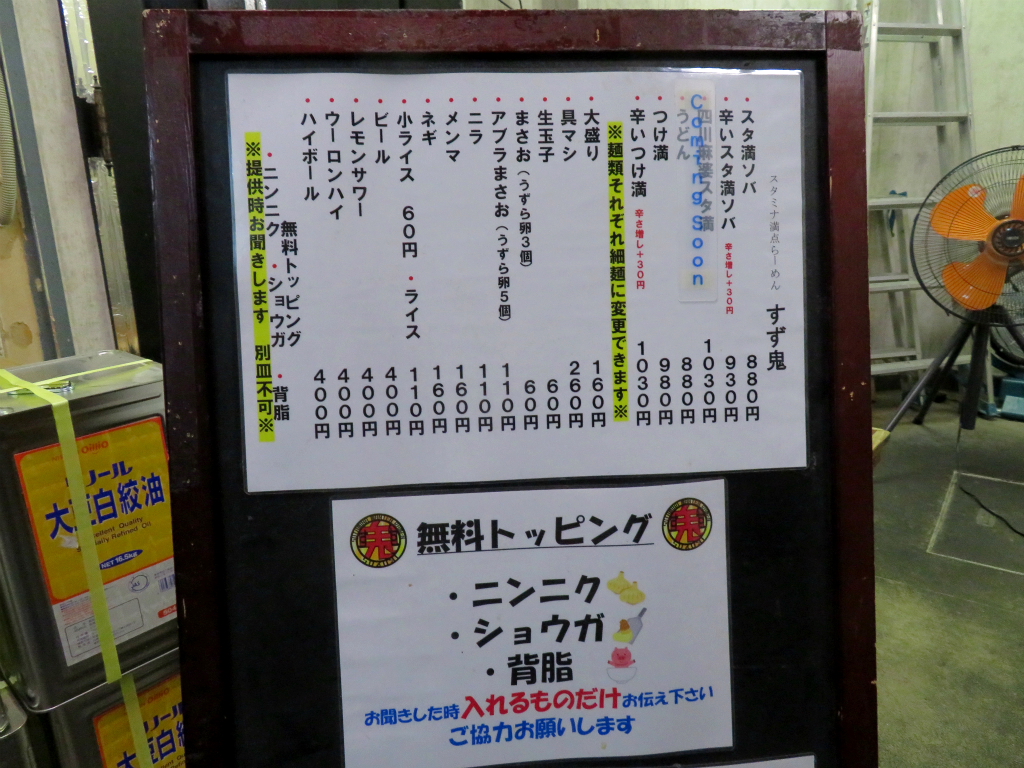 スタミナ満点らーめん すず鬼
・スタ満ソバ 880円
・辛いスタ満ソバ 辛さ増し+30円 930円
四川麻婆スタ満 1030円
・うどん 880円
Coming Soon
・つけ満 980円
・辛いつけ満 辛さ増し+30円 1030円
※麺類それぞれ細麺に変更できます※
・大盛り 160円
・具マシ 260円
・生玉子 60円
・まさお(うずら卵3個) 60円
・アブラまさお(うずら卵5個) 110円
・ニラ 110円
・メンマ 160円
・ネギ 160円
・小ライス 60円 ・ライス 110円
・ビール 400円
・レモンサワー 400円
・ウーロンハイ 400円
・ハイボール 400円
無料トッピング
・ニンニク ・ショウガ ・背脂
※提供時お聞きします 別皿不可※
無料トッピング
・ニンニク
・ショウガ
・背脂
お聞きした時入れるものだけお伝え下さい
ご協力お願いします
大豆白絞油
Excellent Quality
Daily Refined Oil
NET 16.5kg